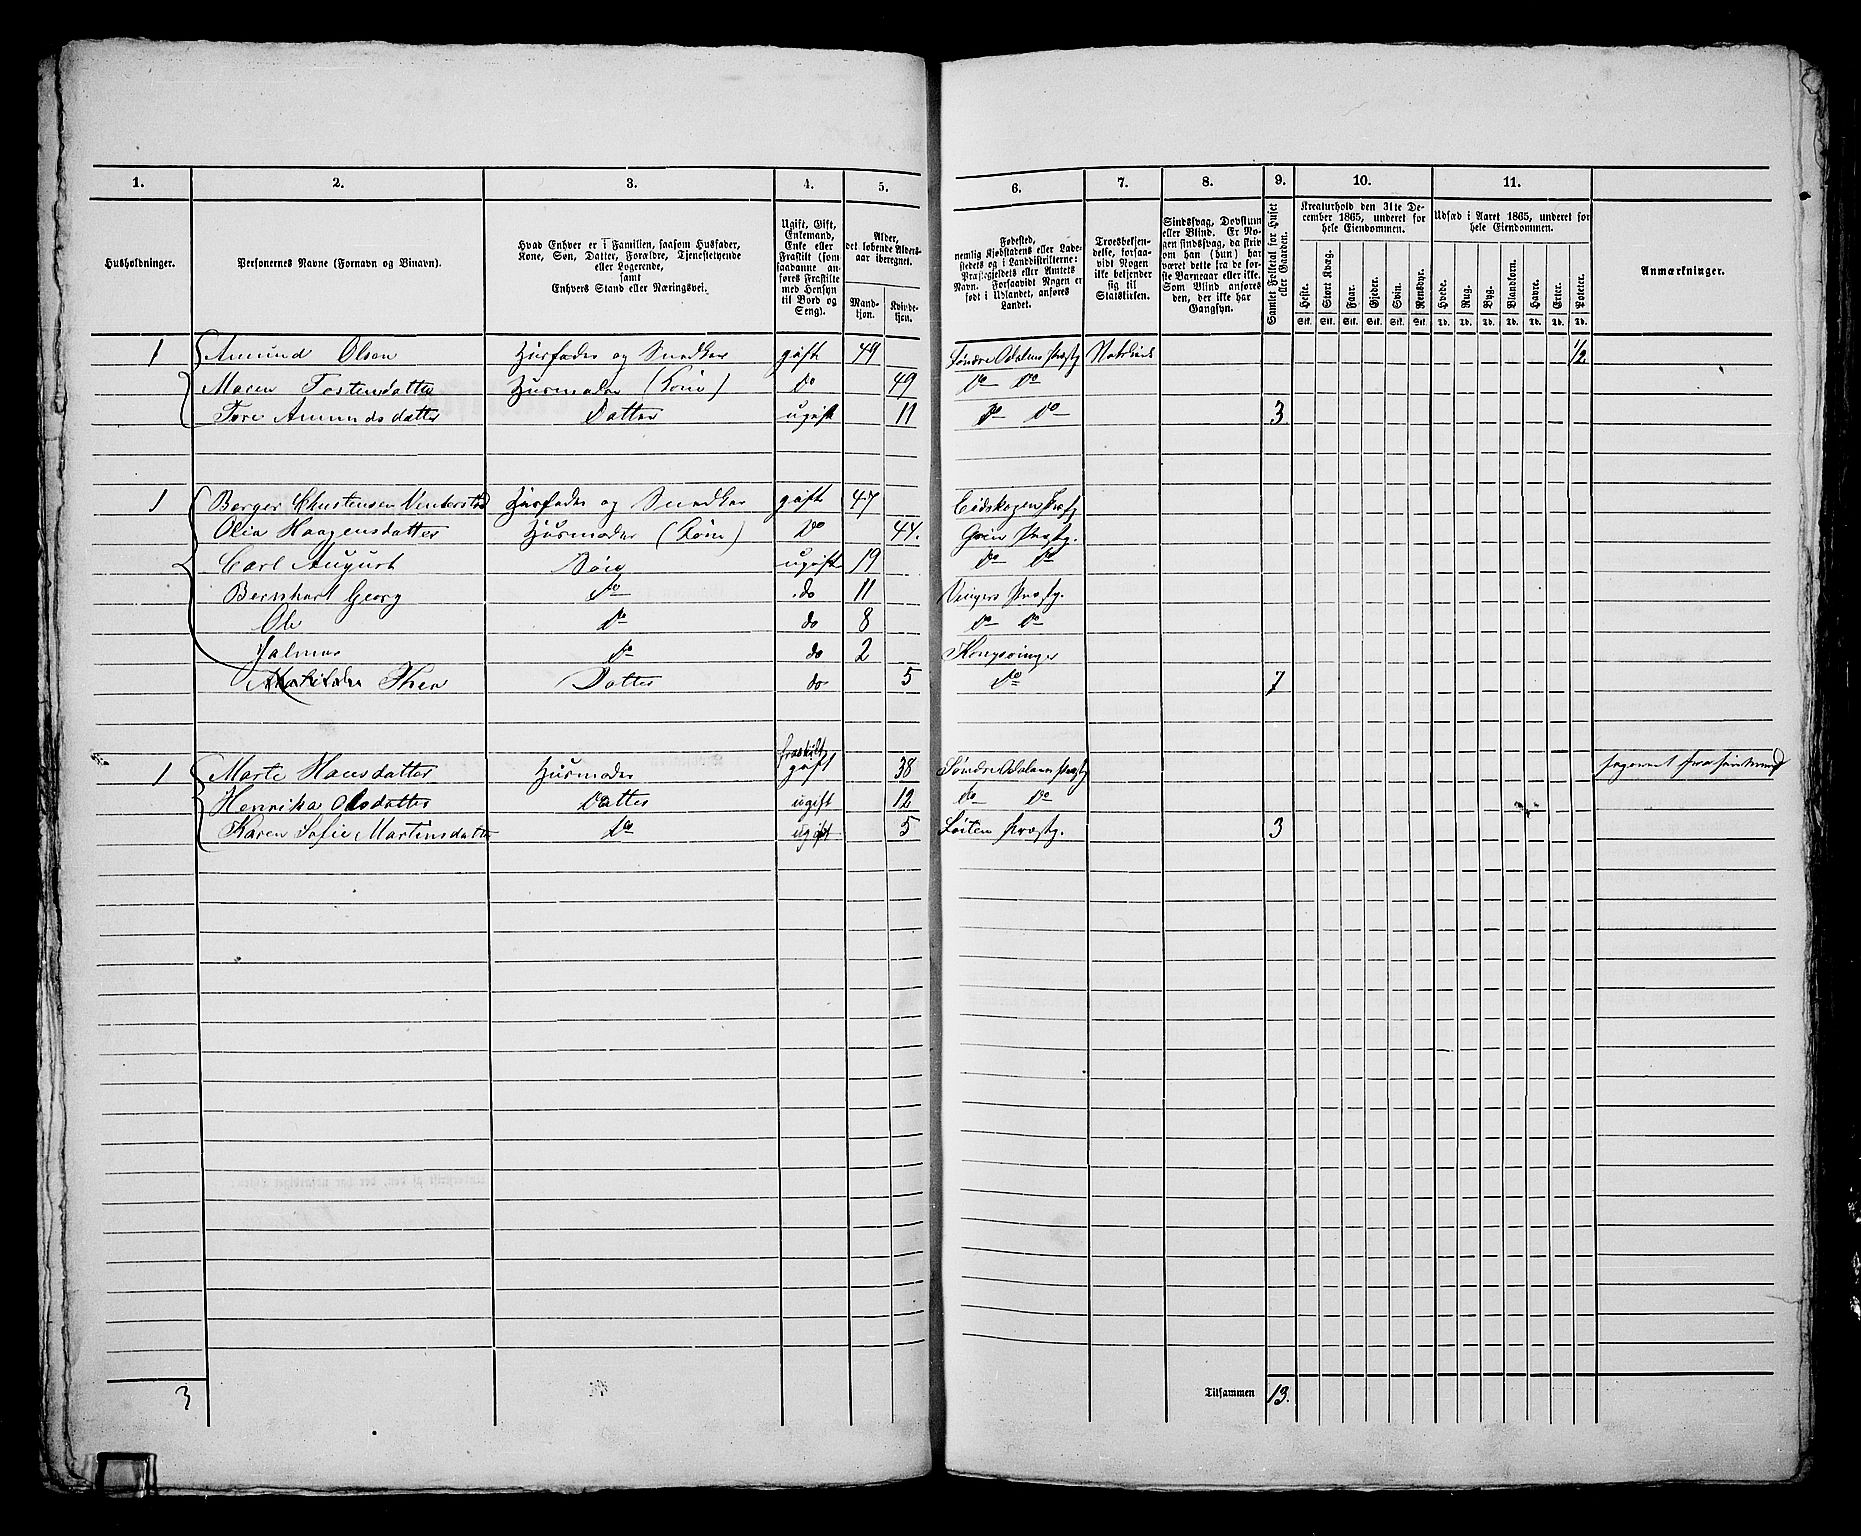 1. 2. 3. 4. 5. 6. 7. 8. 9. 10. 11.
Husholdninger.
Personernes Navne (Fornavn og Binavn).
Hvad Enhver er i Familien, saasom Husfader,
Kone, Søn, Datter, Forældre, Tjenestetyende
eller Logerende,
samt
Enhvers Stand eller Næringsvei.
Ugift, Gift,
Enkemand,
Enke eller
Fraskilt (som
saadanne an-
føres Fraskilte
med Hensyn
til Bord og
Seng).
Alder,
det løbende Alders-
aar iberegnet.
Mand-
kjøn.
Kvinde-
kjøn.
Fødested,
nemlig Kjøbstadens eller Lade-
stedets og i Landdistrikterne:
Præstegjeldets eller Amtets
Navn. Forsaavidt Nogen er
født i Udlandet, anføres
Landet.
Troesbekjen-
delse, forsaa-
vidt Nogen
ikke bekjender
sig til
Statskirken.
Sindssvag, Døvstum
eller Blind. Er No-
gen sindssvag, da skriv
om han (hun) har
været dette fra de før-
ste Barneaar eller ikke.
Som Blind anføres
den, der ikke har
Gangsyn.
Samlet Folketal for Huset
eller Gaarden.
Kreaturhold den 31te De-
cember 1865, underet for
hele Eiendommen.
Heste. Stort Kvæg. Faar. Gjeder. Svin. Rensdyr.
Stk. Stk. Stk. Stk. Stk. Stk.
Udsæd i Aaret 1865, underet for
hele Eiendommen.
Hvede. Rug. Byg. Blandkorn. Havre. Erter. Poteter.
Td. Td. Td. Td. Td. Td. Td.
Anmærkninger.
1 Amund Olsen Husfader og Snedker gift 49 Søndre Odalens Præstg 1/2
Maren Tostensdatter Husmoder (Kone) do 49 do do
Tore Amundsdatter Datter ugift 11 do do 3
1 Berger Christensen Husfader og Snedker gift 47 Eidskogen Præstg
Olia Haagensdatter Husmoder (Kone) do 44. Grue Præstg.
Carl August Søn ugift 19 do do
Bernhart Georg do do 11 Vingers Præstg.
Ole do do 8 do do
Jalmar do do 2 Kongsvinger
Mathilde Thea Datter do 5 do 7
fraskilt
1 Marte Hansdatter Husmoder gift 38 Søndre Odalens Præstg
Henrika Olsdatter Datter ugift 12 do do
Karen Sofie Martinsdatter do ugift 5 Løiten Præstg. 3
3 Tilsammen 13.